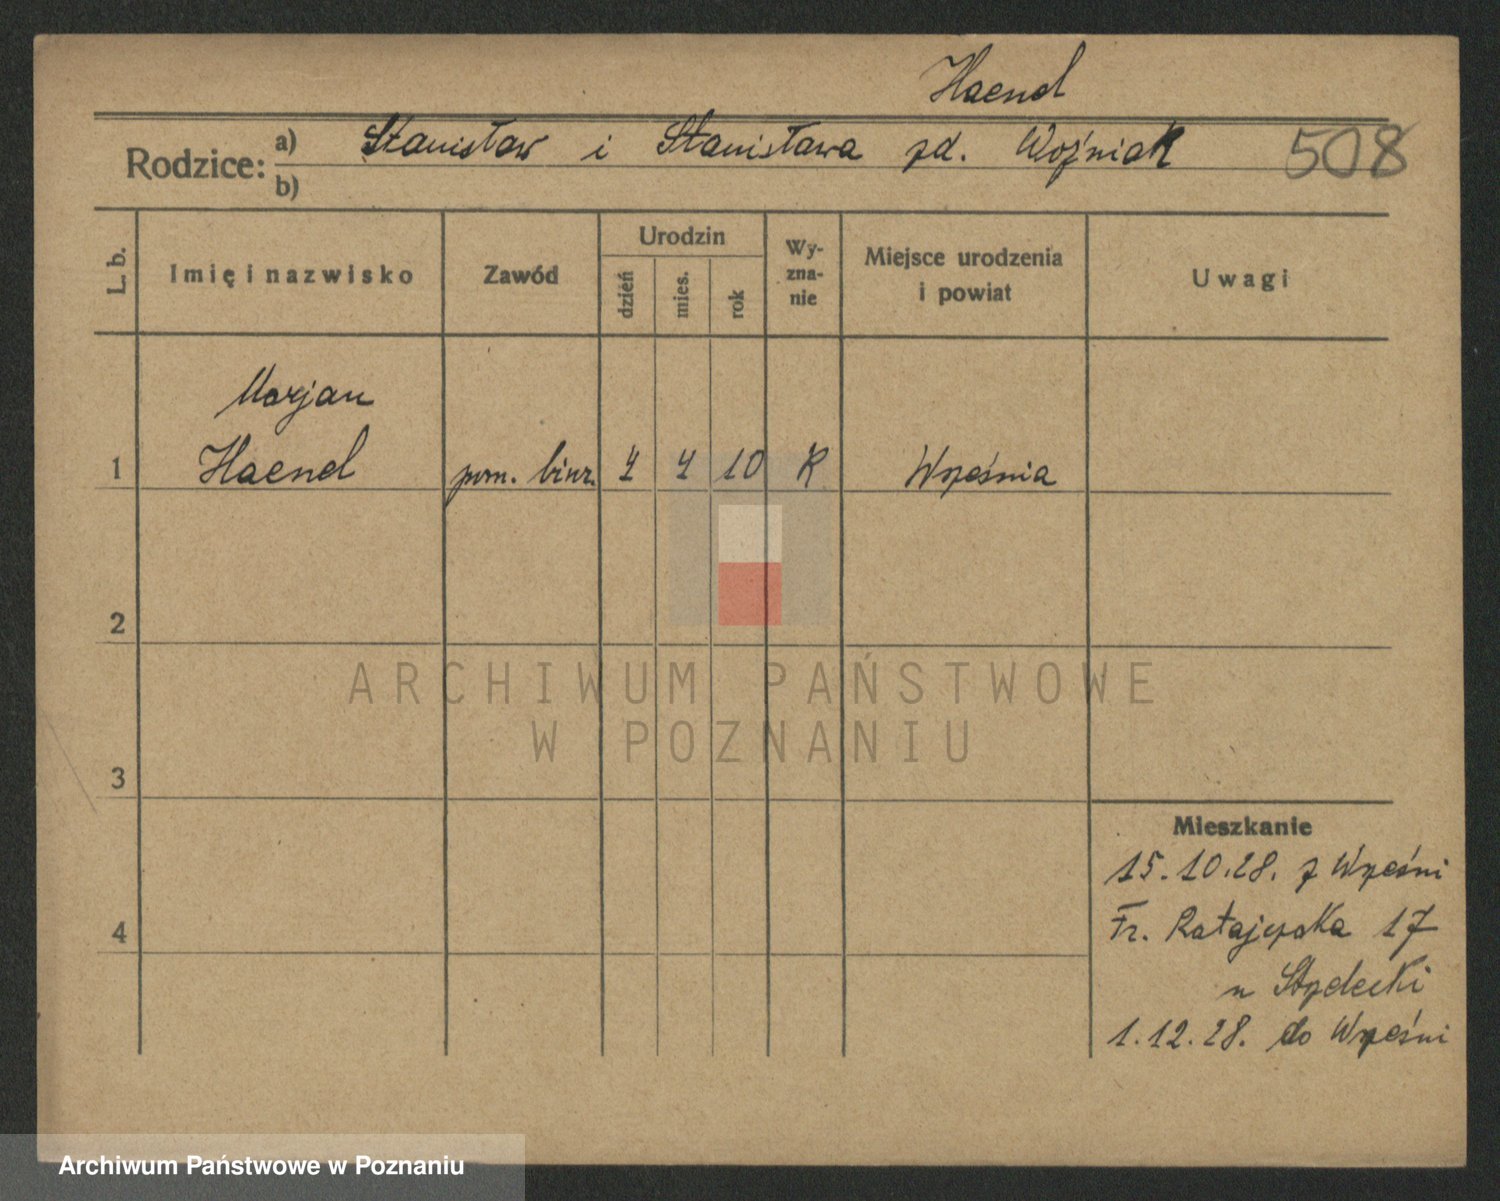 Haendl
Rodzice: a) Stanisław i Stanisława zd. Woźniak 508
b)
L. b. Imię i nazwisko Zawód Urodzin dzień mies. rok Wyznanie Miejsce urodzenia i powiat Uwagi
Marjan
1 Haendl pom. biur. 4 4 10 K Września
2
ARCHIWUM PAŃSTWOWE
W POZNANIU
3
Mieszkanie
15.10.28. z Wrześni
4 Fr. Ratajczaka 17
u
1.12.28. do Wrześni
Archiwum Państwowe w Poznaniu